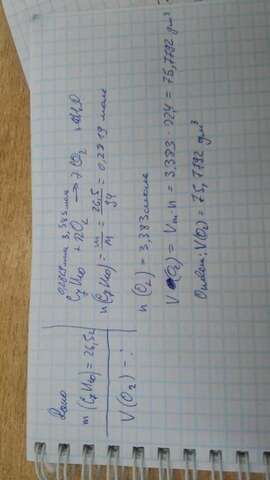 Дано
m(C₇H₁₆) = 26,5г
V(O₂) = ?
3,383 моль
C₇H₁₆ + 11O₂ → 7CO₂ + 8H₂O
n(C₇H₁₆) = m/M = 26,5/94 = 0,2819 моль
n(O₂) = 3,383 моль
V(O₂) = Vm·n = 3,383 · 22,4 = 75,7792 дм³
Ответ: V(O₂) = 75,7792 дм³